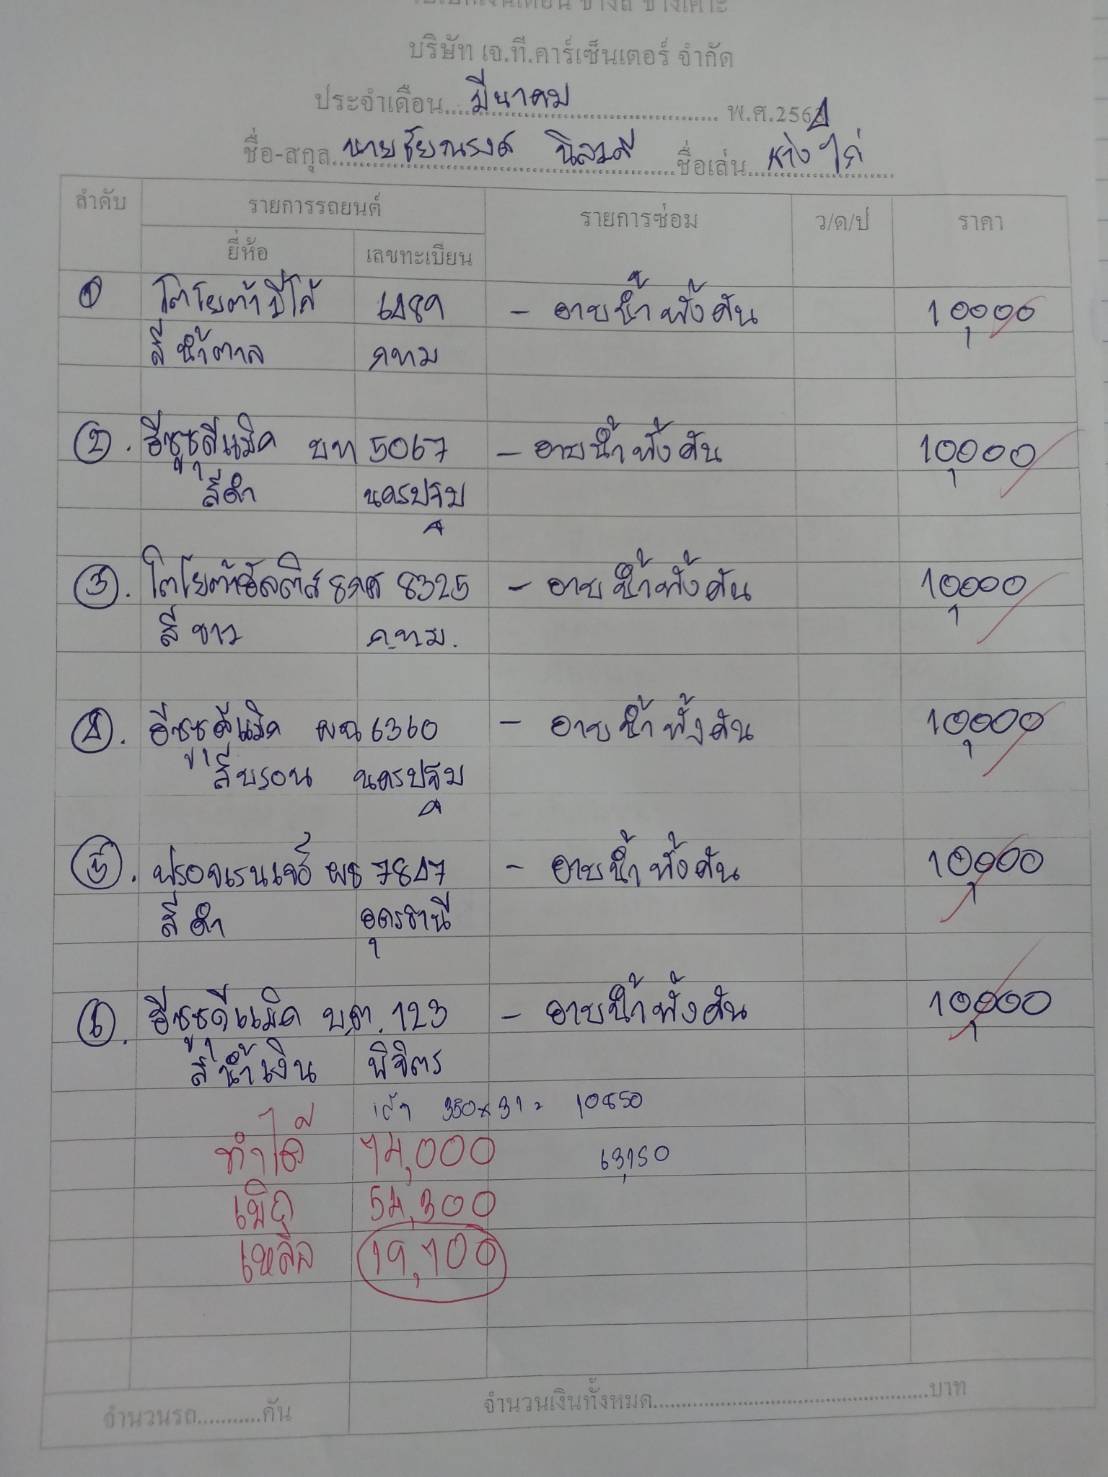 บริษัท เจ.ที.คาร์เซ็นเตอร์ จำกัด
ประจำเดือน....มีนาคม.... พ.ศ.2564
ชื่อ-สกุล..นายชัยณรงค์....ชื่อเล่น...ช่างไก่
ลำดับ รายการรถยนต์ รายการซ่อม ว/ด/ป ราคา
ยี่ห้อ เลขทะเบียน
1 โตโยต้าวีโก้ - อาบน้ำทั้งคัน 10,000
สีน้ำตาล กทม
2. อีซูซุดีแม็ค บท 5067 - อาบน้ำทั้งคัน 10,000
สีดำ นครปฐม
3. โตโยต้าอัลติส 8325 - อาบน้ำทั้งคัน 10,000
สีขาว ก.ทม.
4. อีซูซุดีแม็ค ผฉ 6360 - อาบน้ำทั้งคัน 10,000
สีบรอน นครปฐม
5. ฟรอดเรนเจอร์ ผธ 7847 - อาบน้ำทั้งคัน 10,000
สีดำ อุดรธานี
6. อีซูซุดีแม็ค บ.ต. 123 - อาบน้ำทั้งคัน 10,000
สีน้ำเงิน พิจิตร
350x31= 10850
ทำได้ 74,000 63,150
เบิก 54,300
เหลือ 19,700
จำนวนรถ...........คัน จำนวนเงินทั้งหมด................................................บาท